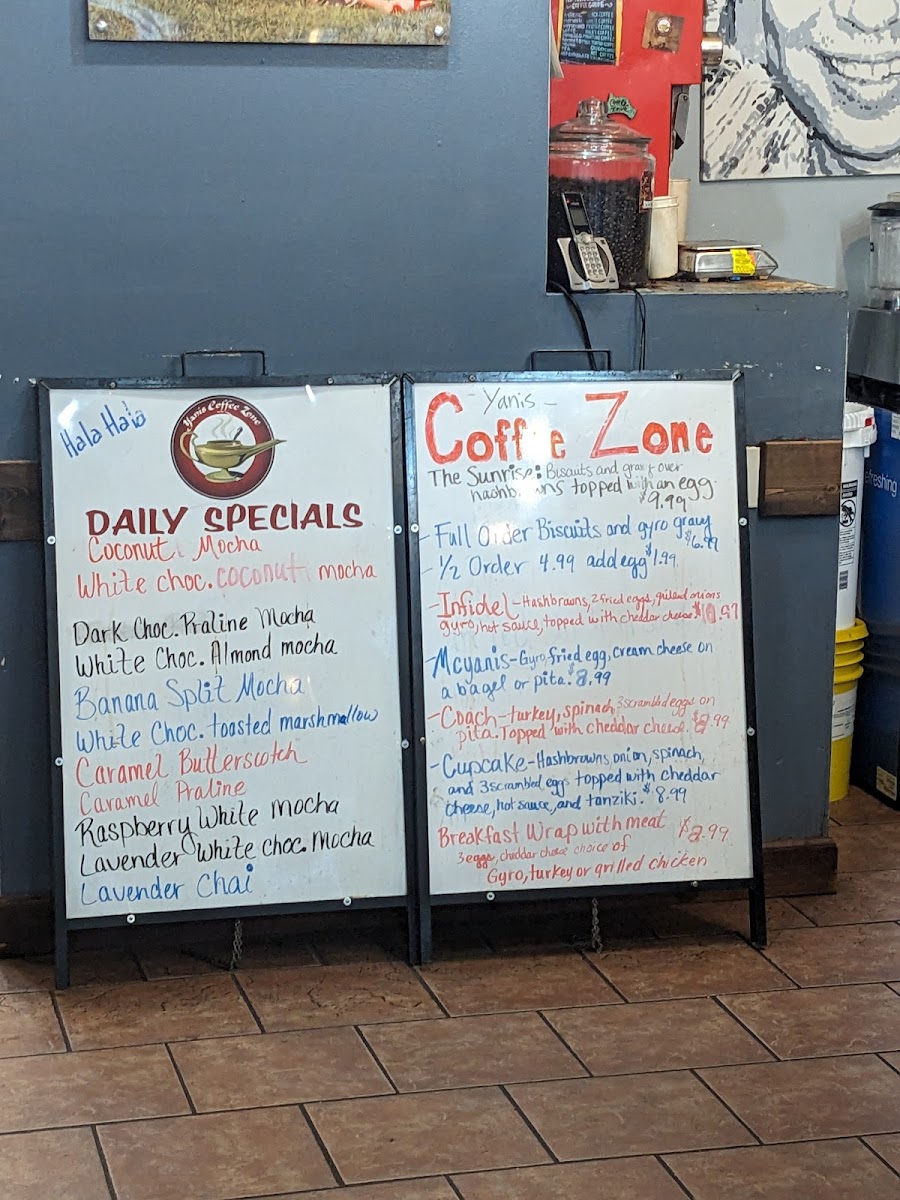 Hala Hala
Yanis Coffee Zone
DAILY SPECIALS
Coconut Mocha
White choc. coconut mocha
Dark Choc. Praline Mocha
White Choc. Almond mocha
Banana Split Mocha
White Choc. toasted marshmallow
Caramel Butterscotch
Caramel Praline
Raspberry White mocha
Lavender White choc. Mocha
Lavender Chai
- Yanis -
Coffee Zone
The Sunrise: Biscuits and gravy over
hashbrowns topped with an egg.
$9.99
- Full Order Biscuits and gyro gravy
$6.99
- 1/2 Order 4.99 add egg $1.99
- Infidel - Hashbrowns, 2 fried eggs, grilled onions
gyro, hot sauce, topped with cheddar cheese
- Mcyanis - Gyro, fried egg, cream cheese on
a bagel or pita. $8.99
- Coach - turkey, spinach, 3 scrambled eggs on
pita. Topped with cheddar cheese.
- Cupcake - Hashbrowns, onion, spinach,
and 3 scrambled eggs topped with cheddar
cheese, hot sauce, and tanziki. $8.99
Breakfast Wrap with meat
3 eggs, cheddar cheese choice of
Gyro, turkey or grilled chicken
refreshing